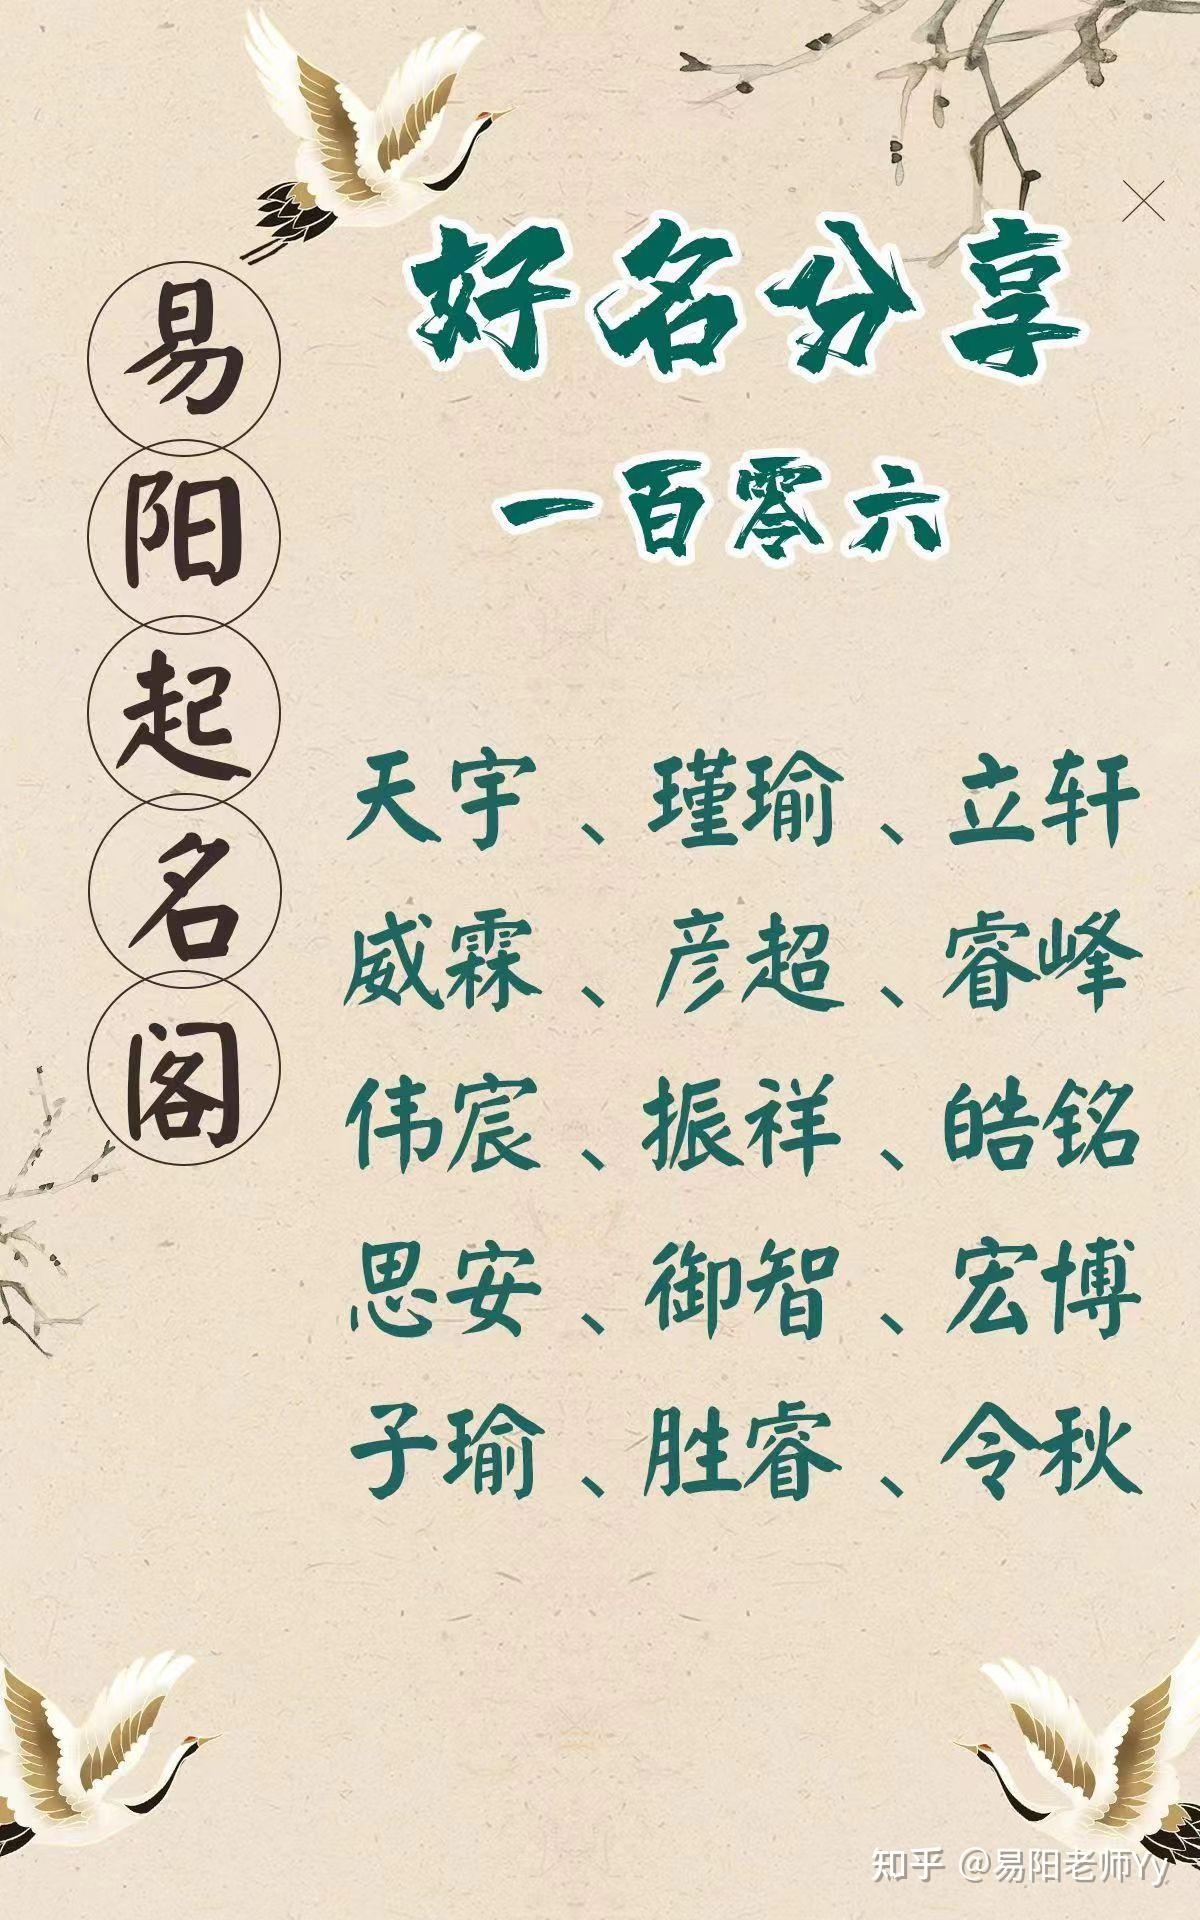 好名分享
一百零六
易阳起名阁
天宇、瑾瑜、立轩
威霖、彦超、睿峰
伟宸、振祥、皓铭
思安、御智、宏博
子瑜、胜睿、令秋
知乎 @易阳老师Yy